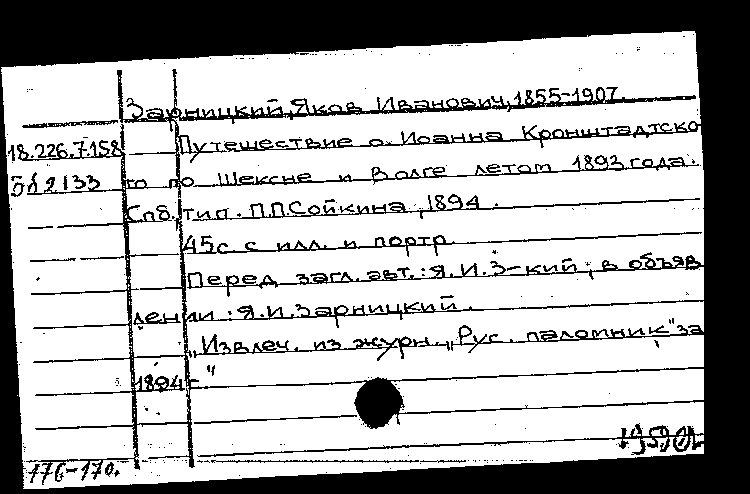 Зарницкий, Яков Иванович, 1855-1907.
18.226.7.158 Путешествие о. Иоанна Кронштадтско
го по Шексне и Волге летом 1893 года.
Спб. тип. П.П.Сойкина, 1894.
45с с илл. и портр.
Перед загл. авт.: Я.И.З-кий; в объяв
лении: Я.И.Зарницкий.
„Извлеч. из журн. „Рус. паломник" за
1894г."
176-170.